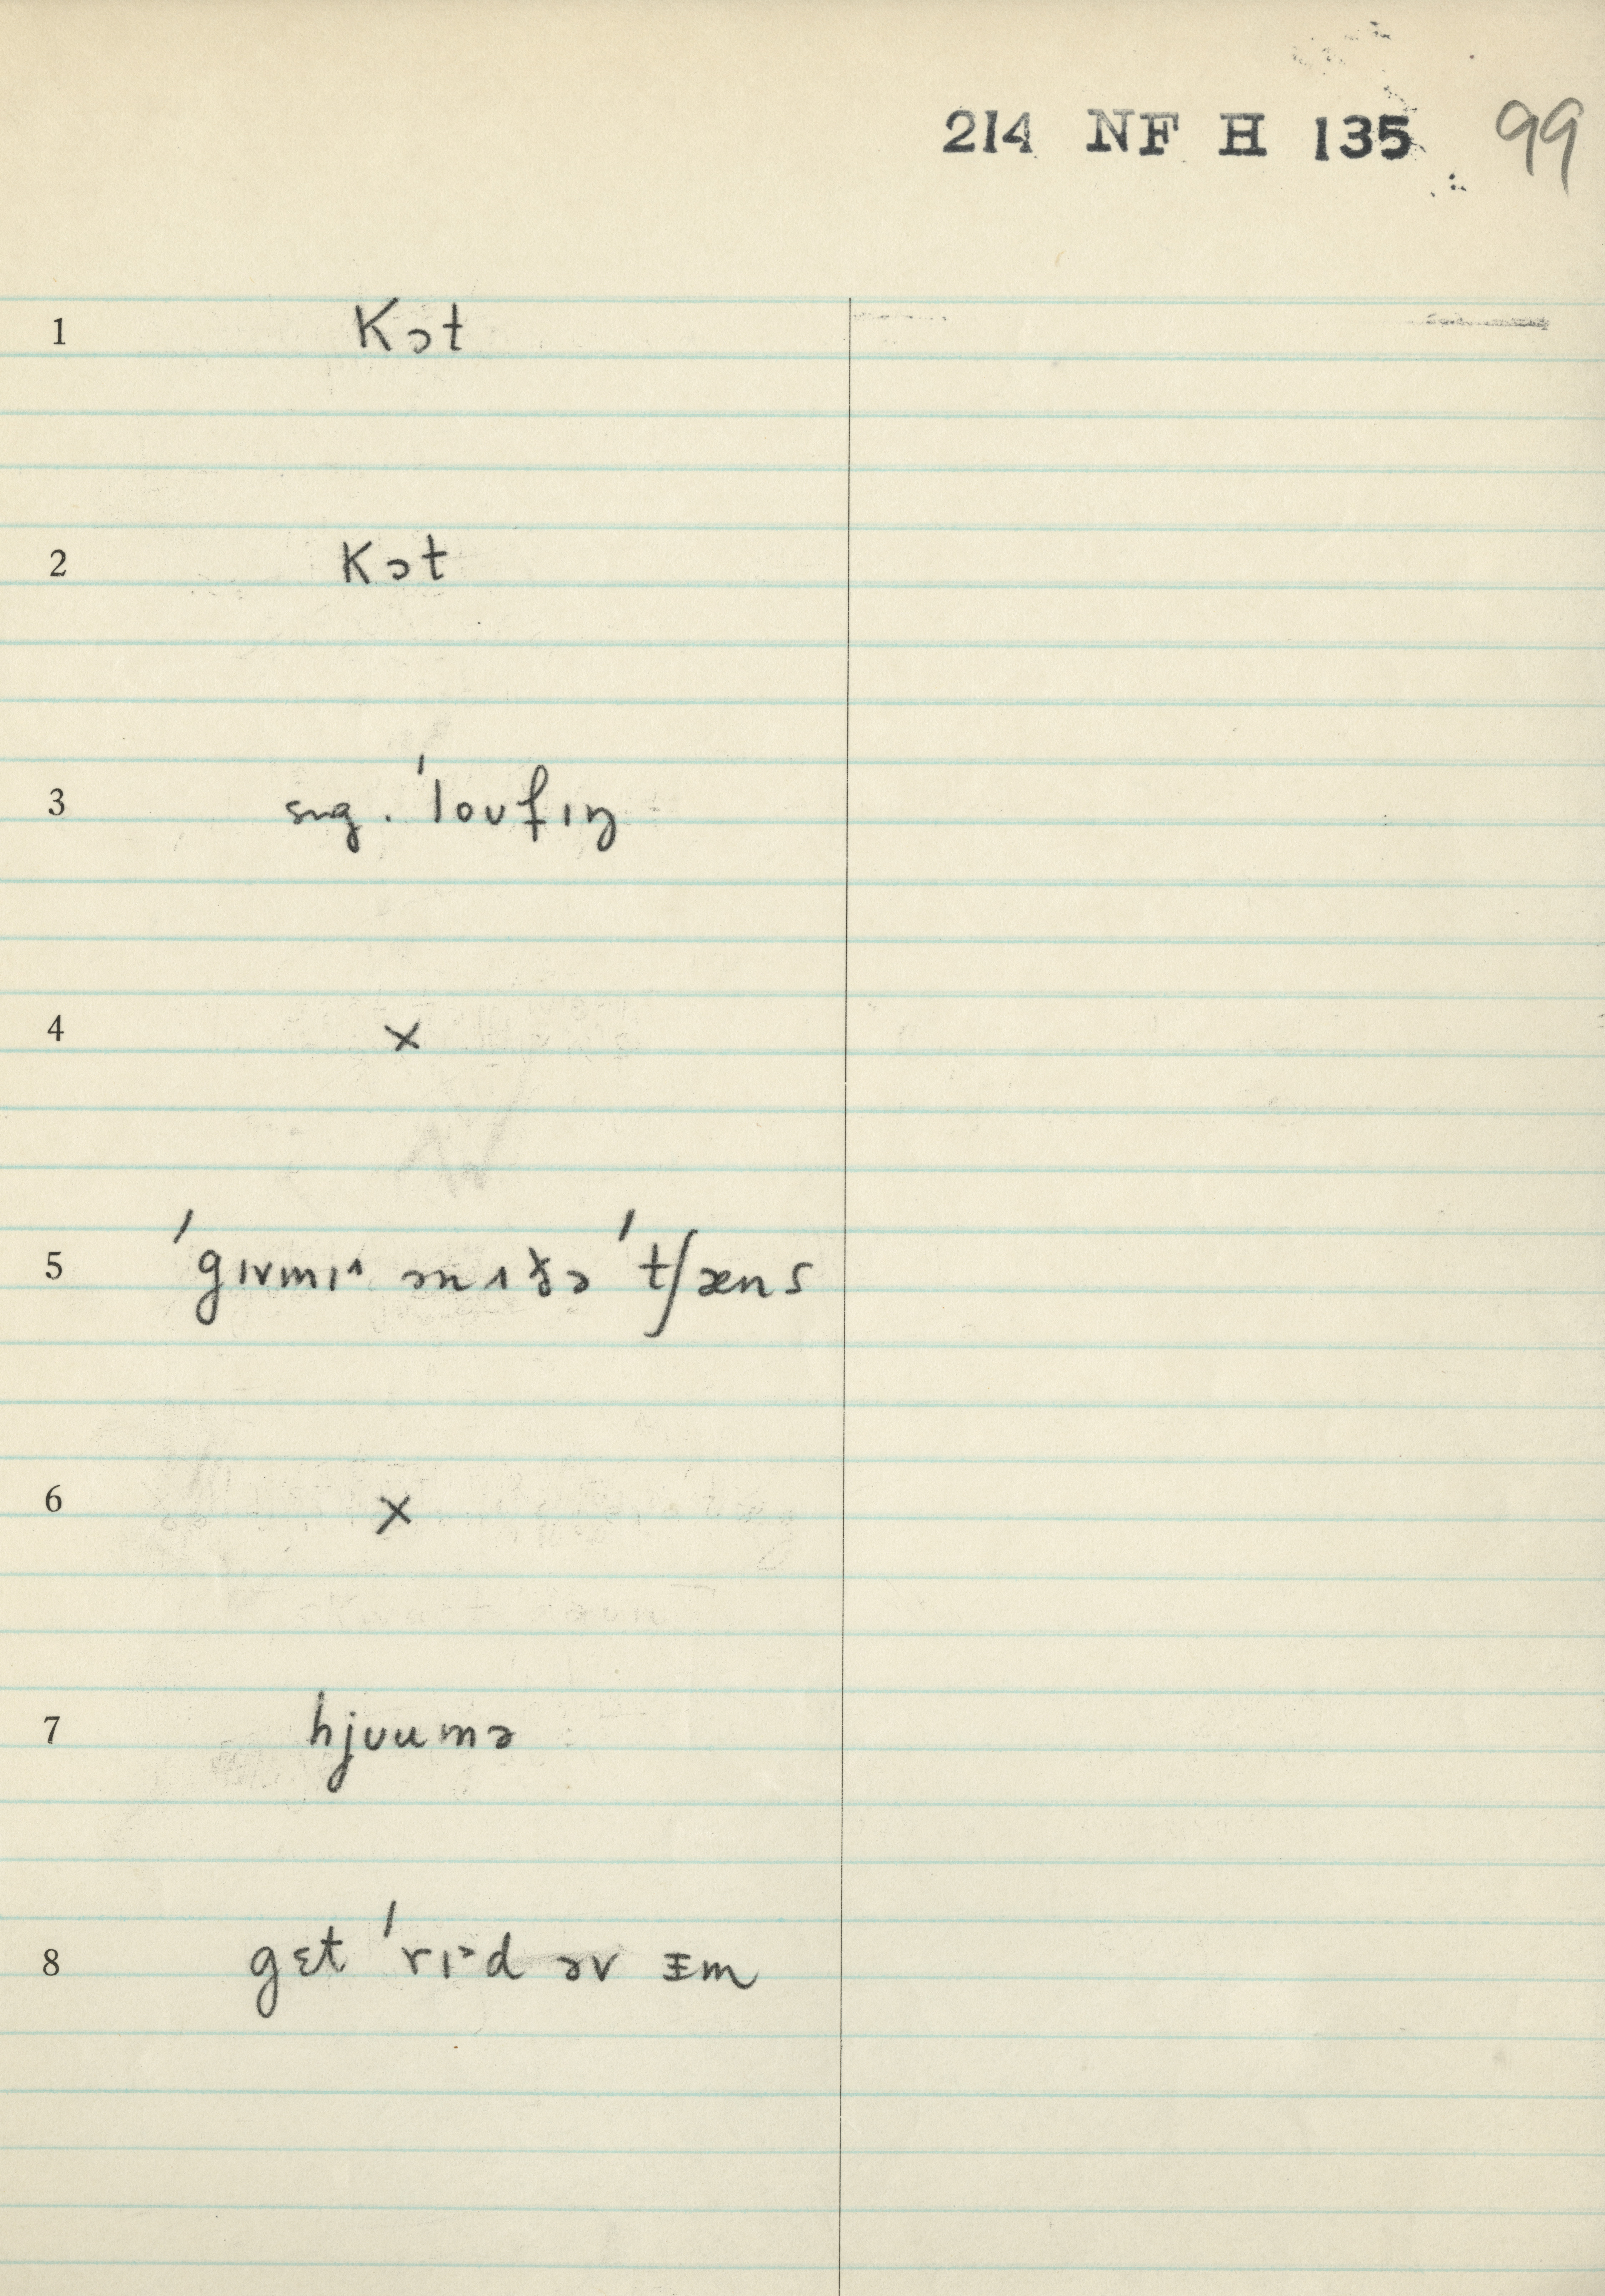 214 NF H 135 99
1 Kɔt
2 Kɔt
3 sug. ˈloʊfɪŋ
4 ×
5 ˈgɪvmɪ˄ ənʌðə ˈtʃæns
6 ×
7 hjʊumə
8 gɛt ˈrɪᵊd əv ɪm